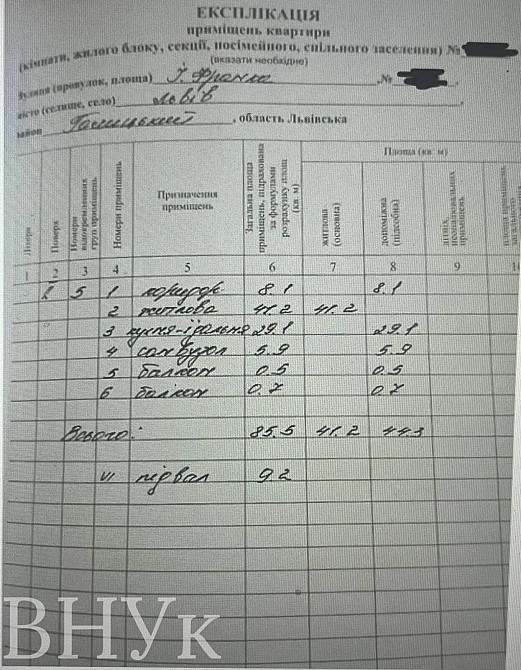 ЕКСПЛІКАЦІЯ
приміщень квартири
(кімнати, жилого блоку, секції, посімейного, спільного заселення) №
(вказати необхідно)
вулиця (провулок, площа) І. Франка, №
місто (селище, село) Львів,
район Галицький, область Львівська
Літера Поверх Номери відокремлених груп приміщень Номери приміщень Призначення приміщень Загальна площа приміщень, підрахована за формулами розрахунку площ (кв. м) Площа (кв. м)
житлова (основна) допоміжна (підсобна) літніх, неопалювальних приміщень площа приміщень загального
1 2 3 4 5 6 7 8 9 10
5 1 коридор 8.1 8.1
2 житлова 41.2 41.2
3 кухня-їдальня 29.1 29.1
4 санвузол 5.9 5.9
5 балкон 0.5 0.5
6 балкон 0.7 0.7
Всього: 85.5 41.2 44.3
VI підвал 9.2
ВНУк